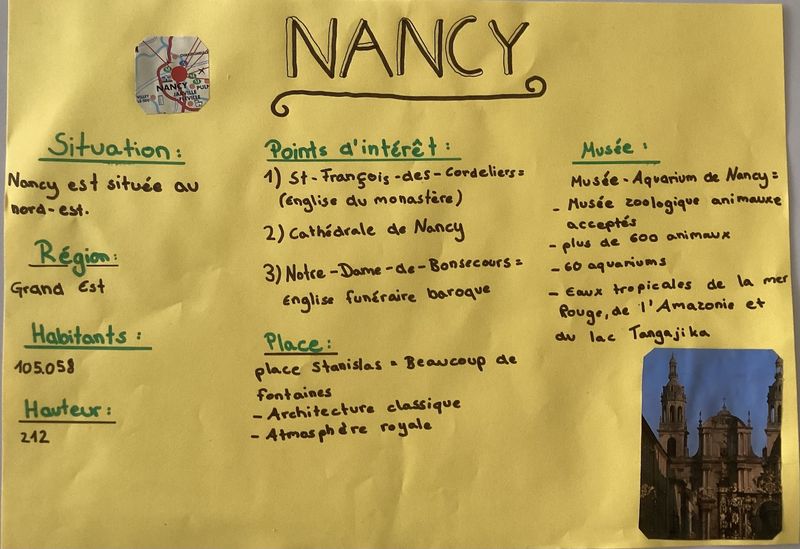 NANCY
NANCY
Situation:
Nancy est située au
nord-est.
Région:
Grand Est
Habitants:
105.058
Hauteur:
212
Points d'intérêt:
1) St-François-des-Cordeliers=
(Englise du monastère)
2) Cathédrale de Nancy
3) Notre-Dame-de-Bonsecours=
Englise funéraire baroque
Place:
place Stanislas = Beaucoup de
fontaines
- Architecture classique
- Atmosphère royale
Musée:
Musée-Aquarium de Nancy=
- Musée zoologique animauxe
acceptés
- plus de 600 animaux
- 60 aquariums
- Eaux tropicales de la mer
Rouge, de l'Amazonie et
du lac Tangajika